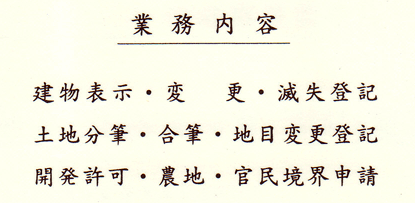 業務内容
建物表示・変　更・滅失登記
土地分筆・合筆・地目変更登記
開発許可・農地・官民境界申請